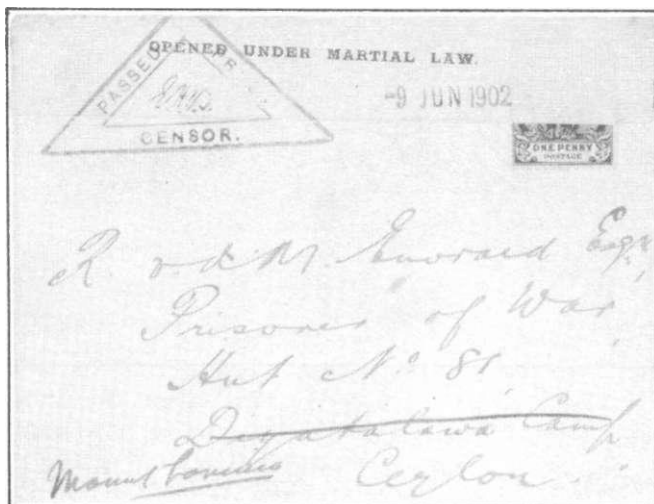 OPENED UNDER MARTIAL LAW.
PASSED
CENSOR.
-9 JUN 1902
ONE PENNY
POSTAGE
R. v. d. M. Esqr
Prisoner of War
Hut No 81
Diyatalawa Camp
Mount Lavinia Ceylon